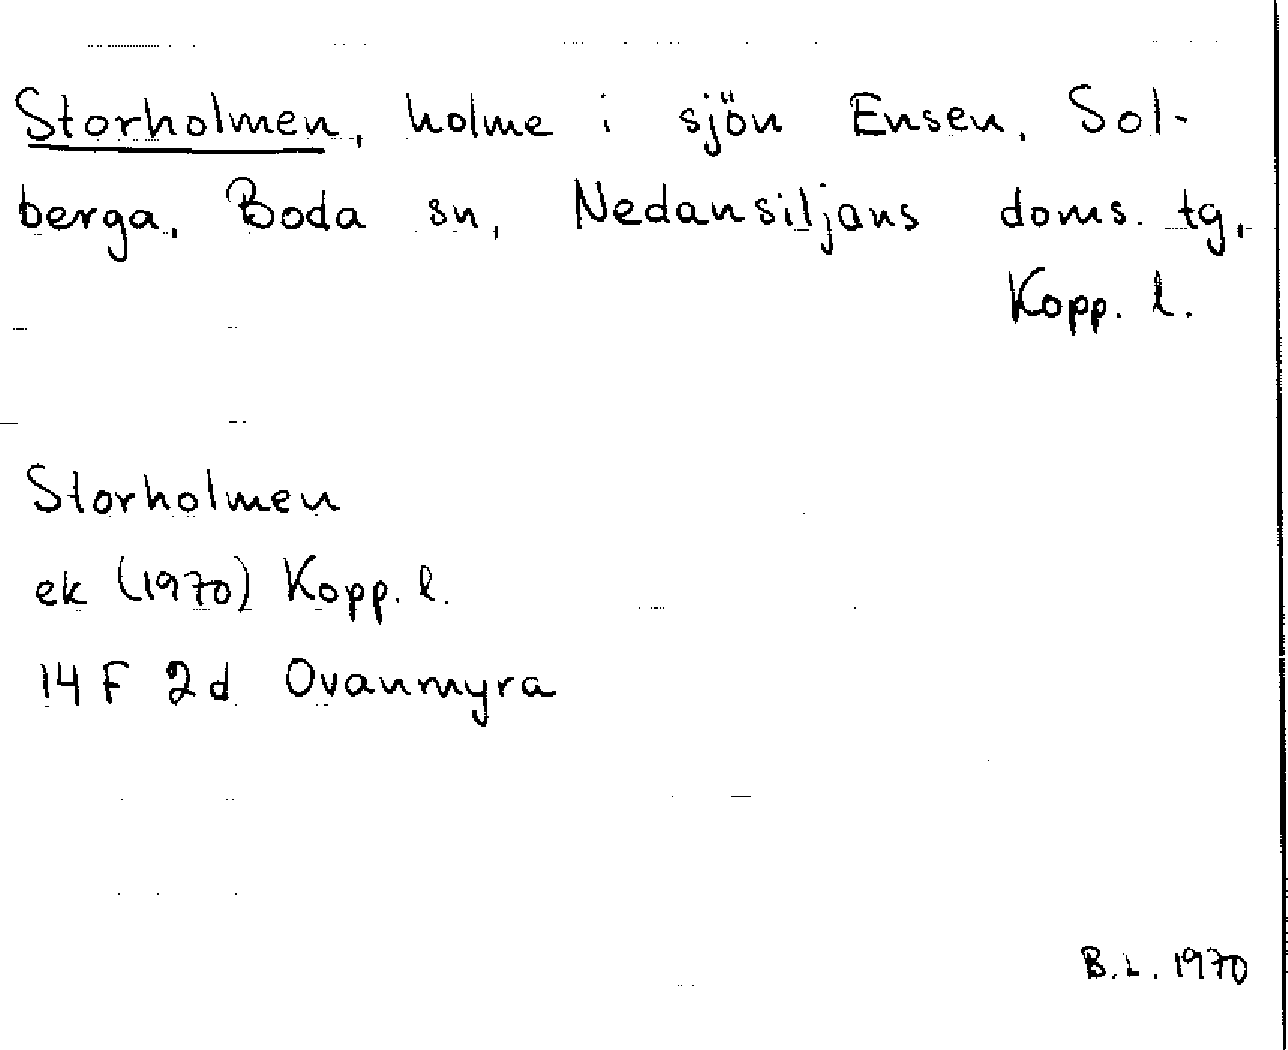 Storholmen, holme i sjön Ensen, Sol-
berga, Boda sn, Nedansiljans doms. tg,
Kopp. l.
Storholmen
ek (1970) Kopp. l.
14 F 2d Ovanmyra
B.L. 1970